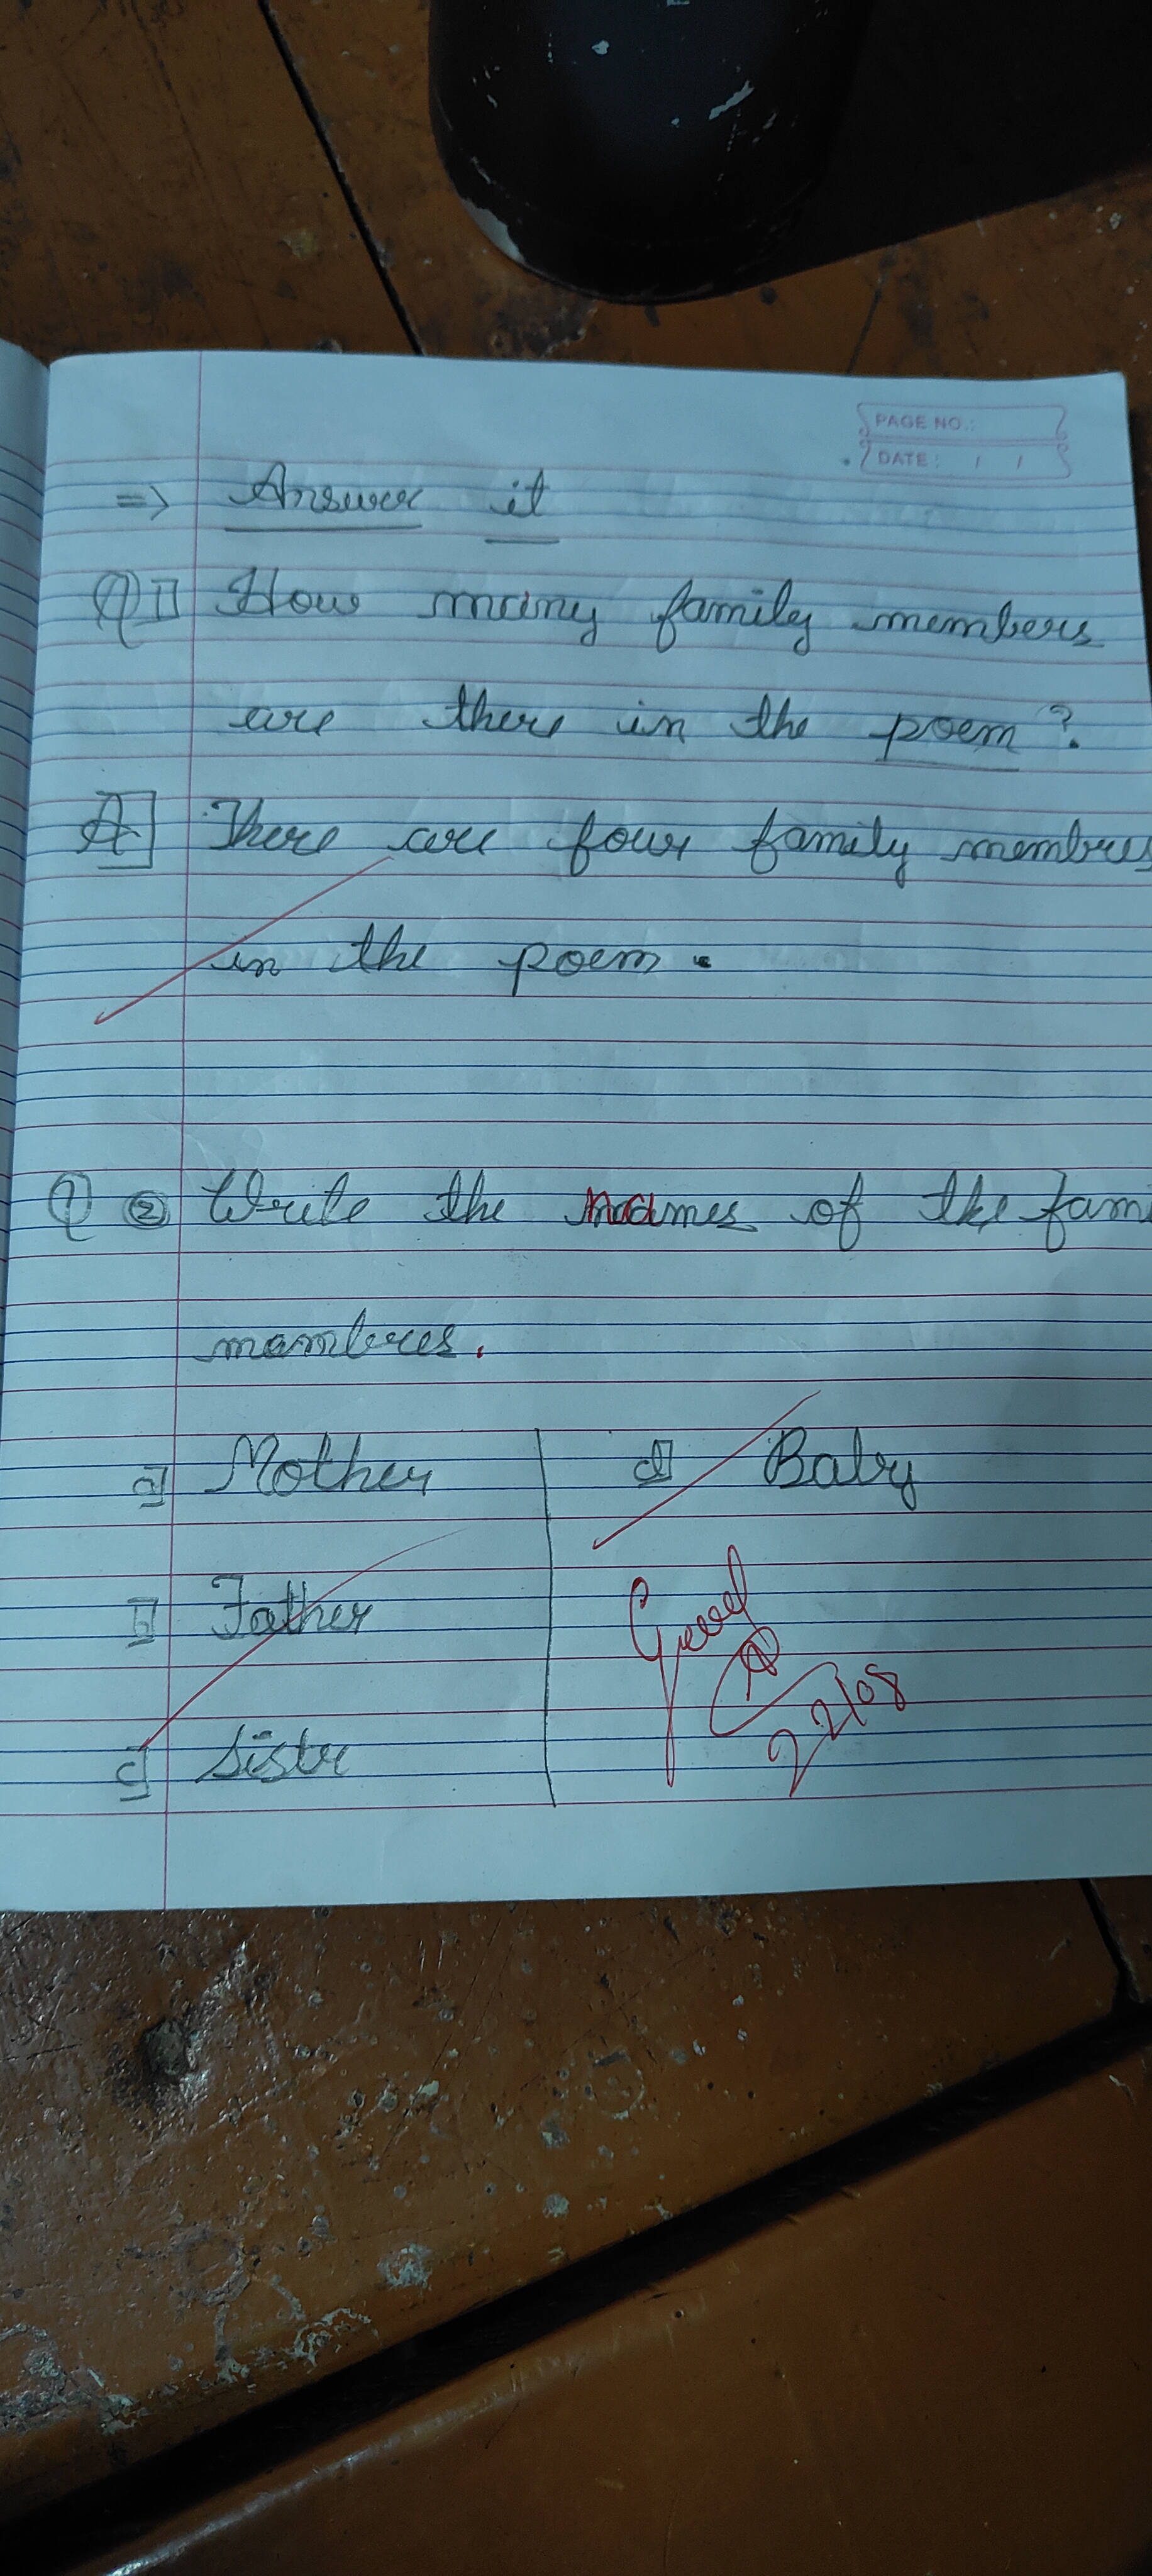 PAGE NO.:
DATE: / /
=> Answer it
Q1] How many family members
are there in the poem?
A] There are four family membres
in the poem.
Q 2 Write the names of the fami
mambres.
a] Mother
b] Father
c] Sistr
d] Baby
Good
22/08